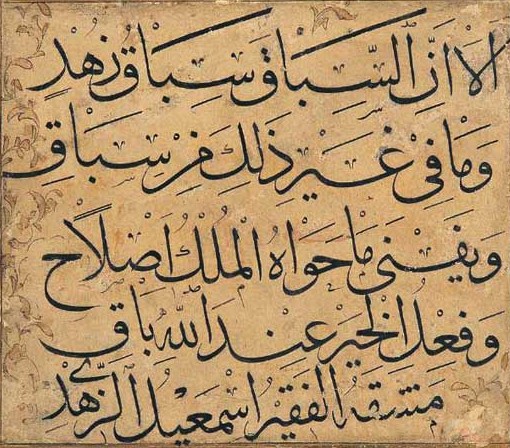 الا ان السباق سباق زهد
وما في غير ذلك من سباق
ويفنى ما حواه الملك اصلاح
وفعل الخير عند الله باق
مشقه الفقير اسمعيل الزهدي